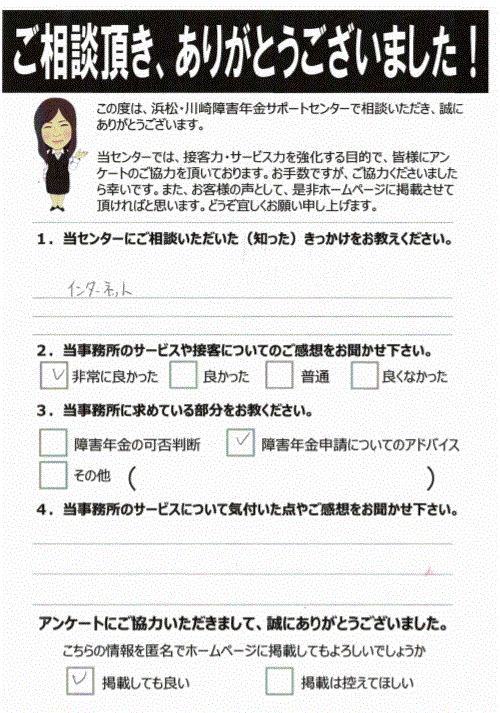 ご相談頂き、ありがとうございました！
この度は、浜松・川崎障害年金サポートセンターで相談いただき、誠に
ありがとうございます。
当センターでは、接客力・サービス力を強化する目的で、皆様にアン
ケートのご協力を頂いております。お手数ですが、ご協力くださいました
ら幸いです。また、お客様の声として、是非ホームページに掲載させて
頂ければと思います。どうぞ宜しくお願い申し上げます。
1．当センターにご相談いただいた（知った）きっかけをお教えください。
インターネット
2．当事務所のサービスや接客についてのご感想をお聞かせ下さい。
✓ 非常に良かった 良かった 普通 良くなかった
3．当事務所に求めている部分をお教ください。
障害年金の可否判断 ✓ 障害年金申請についてのアドバイス
その他 ( )
4．当事務所のサービスについて気付いた点やご感想をお聞かせ下さい。
アンケートにご協力いただきまして、誠にありがとうございました。
こちらの情報を匿名でホームページに掲載してもよろしいでしょうか
✓ 掲載しても良い 掲載は控えてほしい